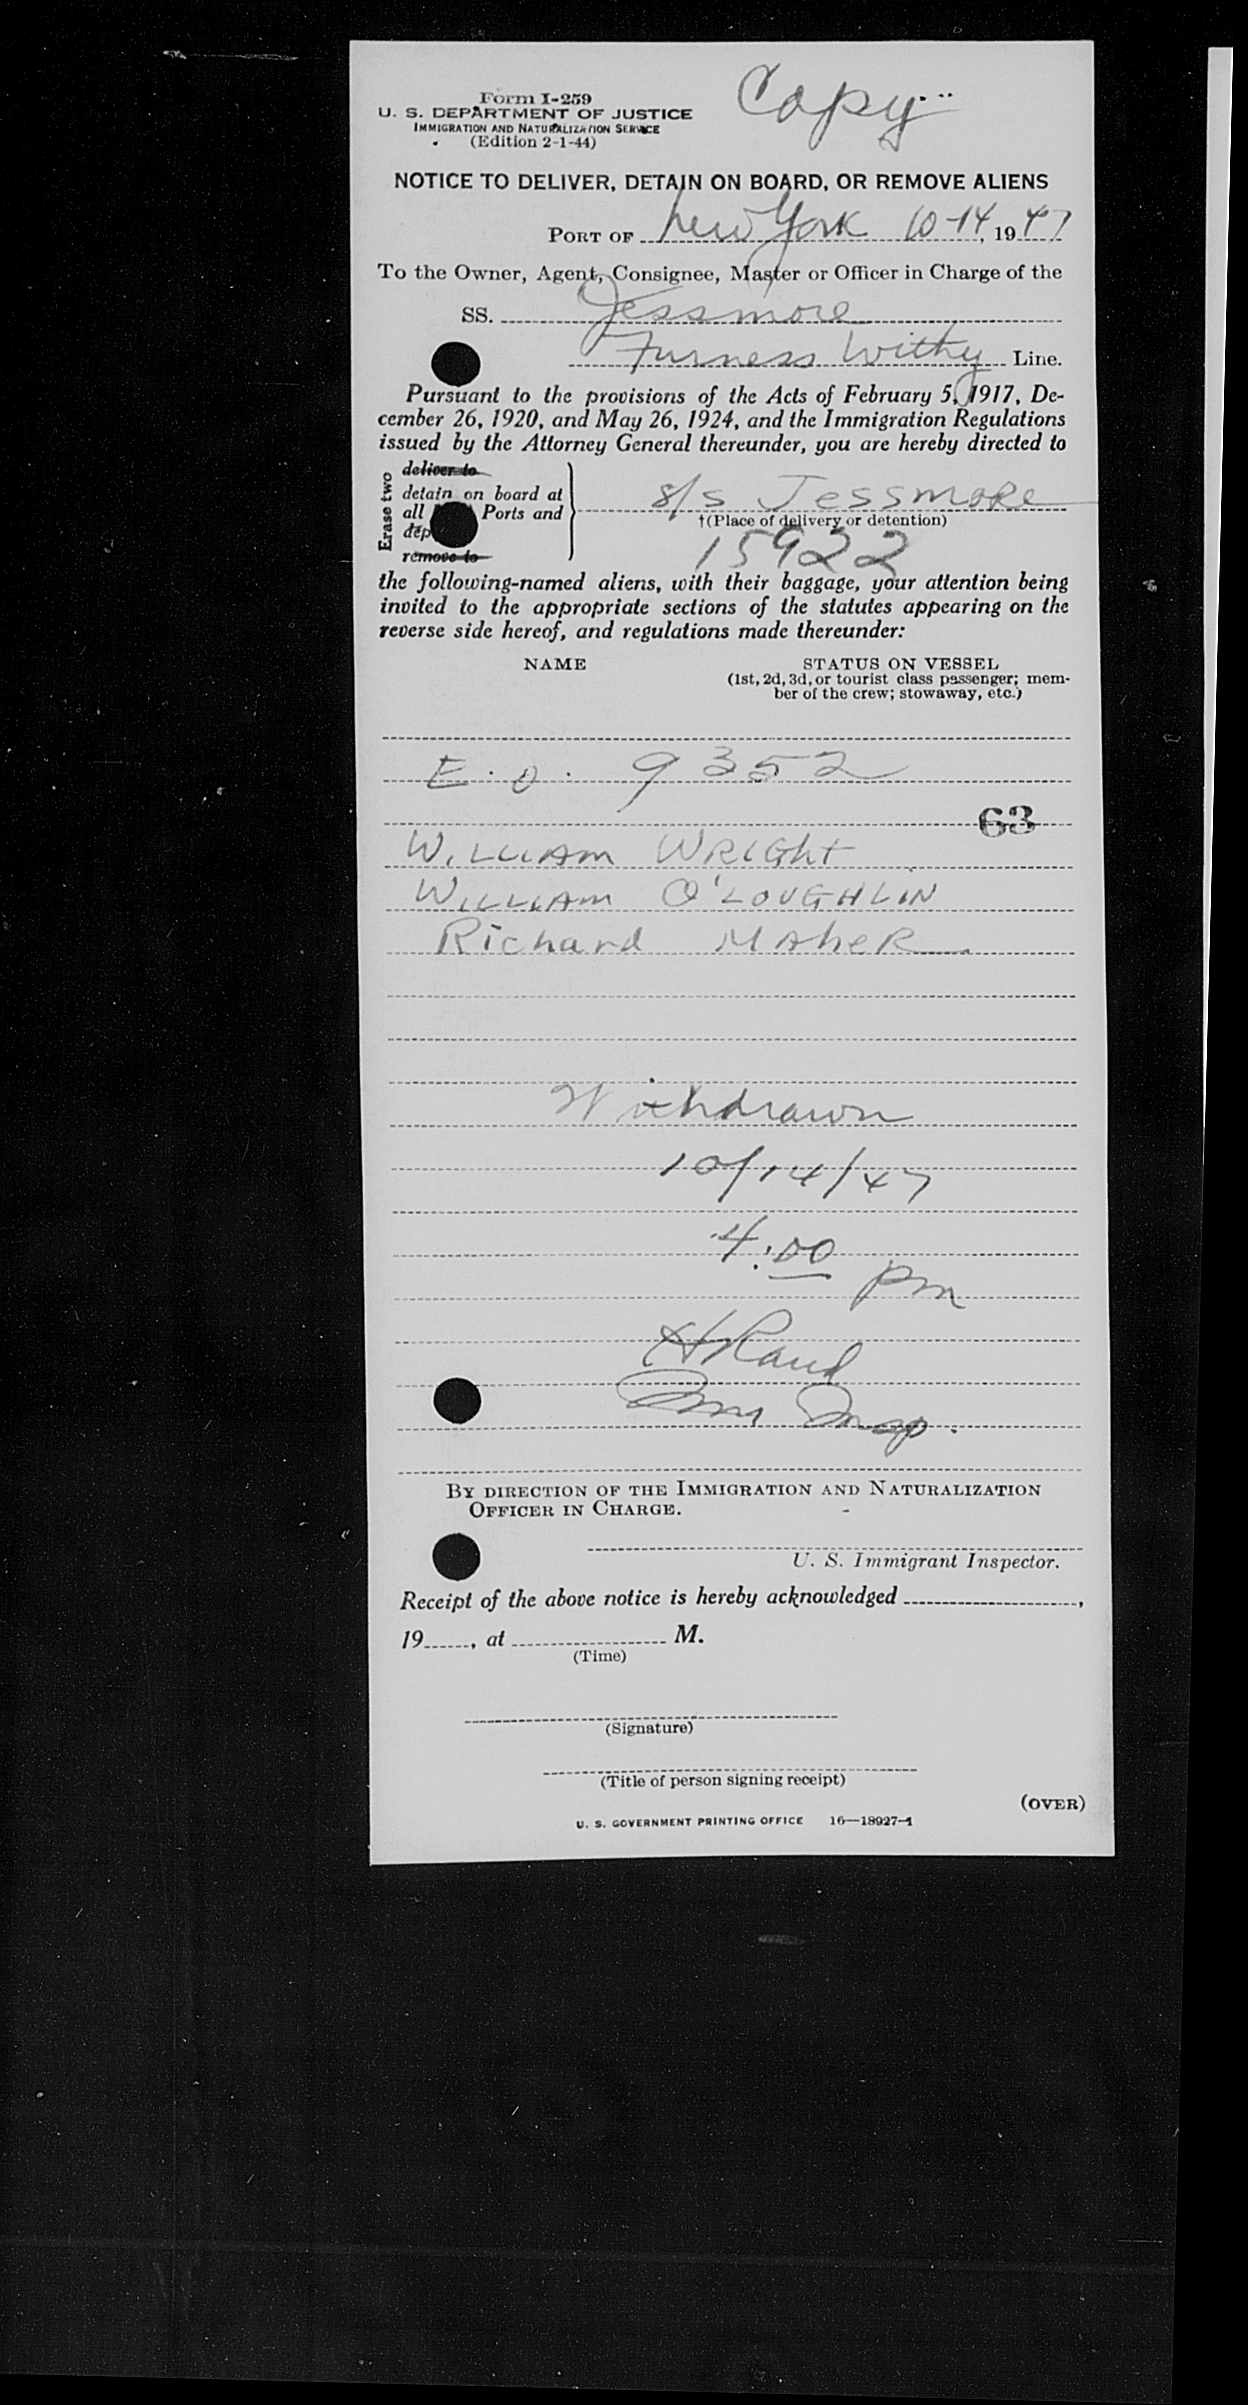 Copy
Form I-259
U. S. DEPARTMENT OF JUSTICE
IMMIGRATION AND NATURALIZATION SERVICE
(Edition 2-1-44)
NOTICE TO DELIVER, DETAIN ON BOARD, OR REMOVE ALIENS
PORT OF New York 10-14, 1947
To the Owner, Agent, Consignee, Master or Officer in Charge of the
SS. Jessmore
Furness Withy Line.
Pursuant to the provisions of the Acts of February 5, 1917, De-
cember 26, 1920, and May 26, 1924, and the Immigration Regulations
issued by the Attorney General thereunder, you are hereby directed to
Erase two
deliver to
detain on board at
all Ports and
dep
remove to
s/s Jessmore
†(Place of delivery or detention)
15922
the following-named aliens, with their baggage, your attention being
invited to the appropriate sections of the statutes appearing on the
reverse side hereof, and regulations made thereunder:
NAME STATUS ON VESSEL
(1st, 2d, 3d, or tourist class passenger; mem-
ber of the crew; stowaway, etc.)
E.O. 9352
63
WILLIAM WRIGHT
WILLIAM O'LOUGHLIN
Richard MAHER
Withdrawn
10/14/47
4:00 pm
H Rand
Imm Insp.
BY DIRECTION OF THE IMMIGRATION AND NATURALIZATION
OFFICER IN CHARGE.
U. S. Immigrant Inspector.
Receipt of the above notice is hereby acknowledged ,
19 , at M.
(Time)
(Signature)
(Title of person signing receipt)
(OVER)
U. S. GOVERNMENT PRINTING OFFICE 16—18927-1